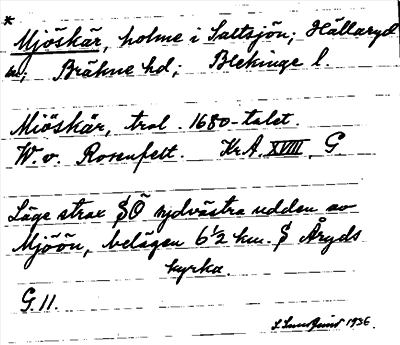 *
Mjöskär, holme i Saltsjön; Hällaryd
sn; Bräkne hd; Blekinge l.
Miöskär, trol. 1680-talet.
W. v. Rosenfelt. Kr.A. XVIII. G
Läge strax SÖ sydvästra udden av
Mjöön, belägen 6½ km. S Åryds
kyrka.
G. 11.
S. Lundqvist 1936.